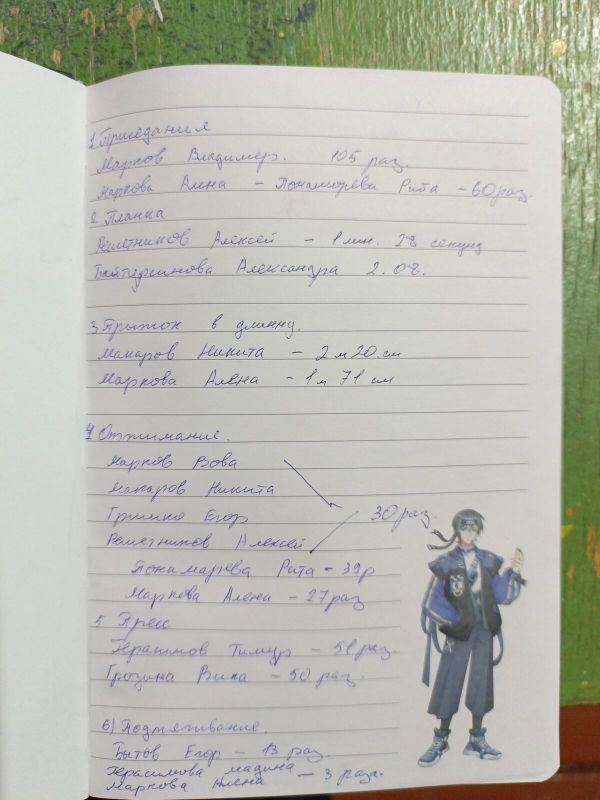 1 Приседания
Марков Владимир. 105 раз.
Маркова Алена - Понаморева Рита - 60 раз.
2 Планка
Решетников Алексей - 1 мин. 28 секунд
Александра 2.08.
3 Прыжок в длинну.
Макаров Никита - 2 м 20 см
Маркова Алена - 1 м 71 см
4 Отжимание.
Марков Вова
Макаров Никита
Гришко Егор 30 раз.
Решетников Алексей
Понамарева Рита - 39 р
Маркова Алена - 27 раз
5 Пресс
Герасимов Тимур - 51 раз.
Грозина Вика - 50 раз.
6) Подтягивание.
Бытов Егор - 13 раз.
Герасимова мадина
Маркова Алена - 3 раза.